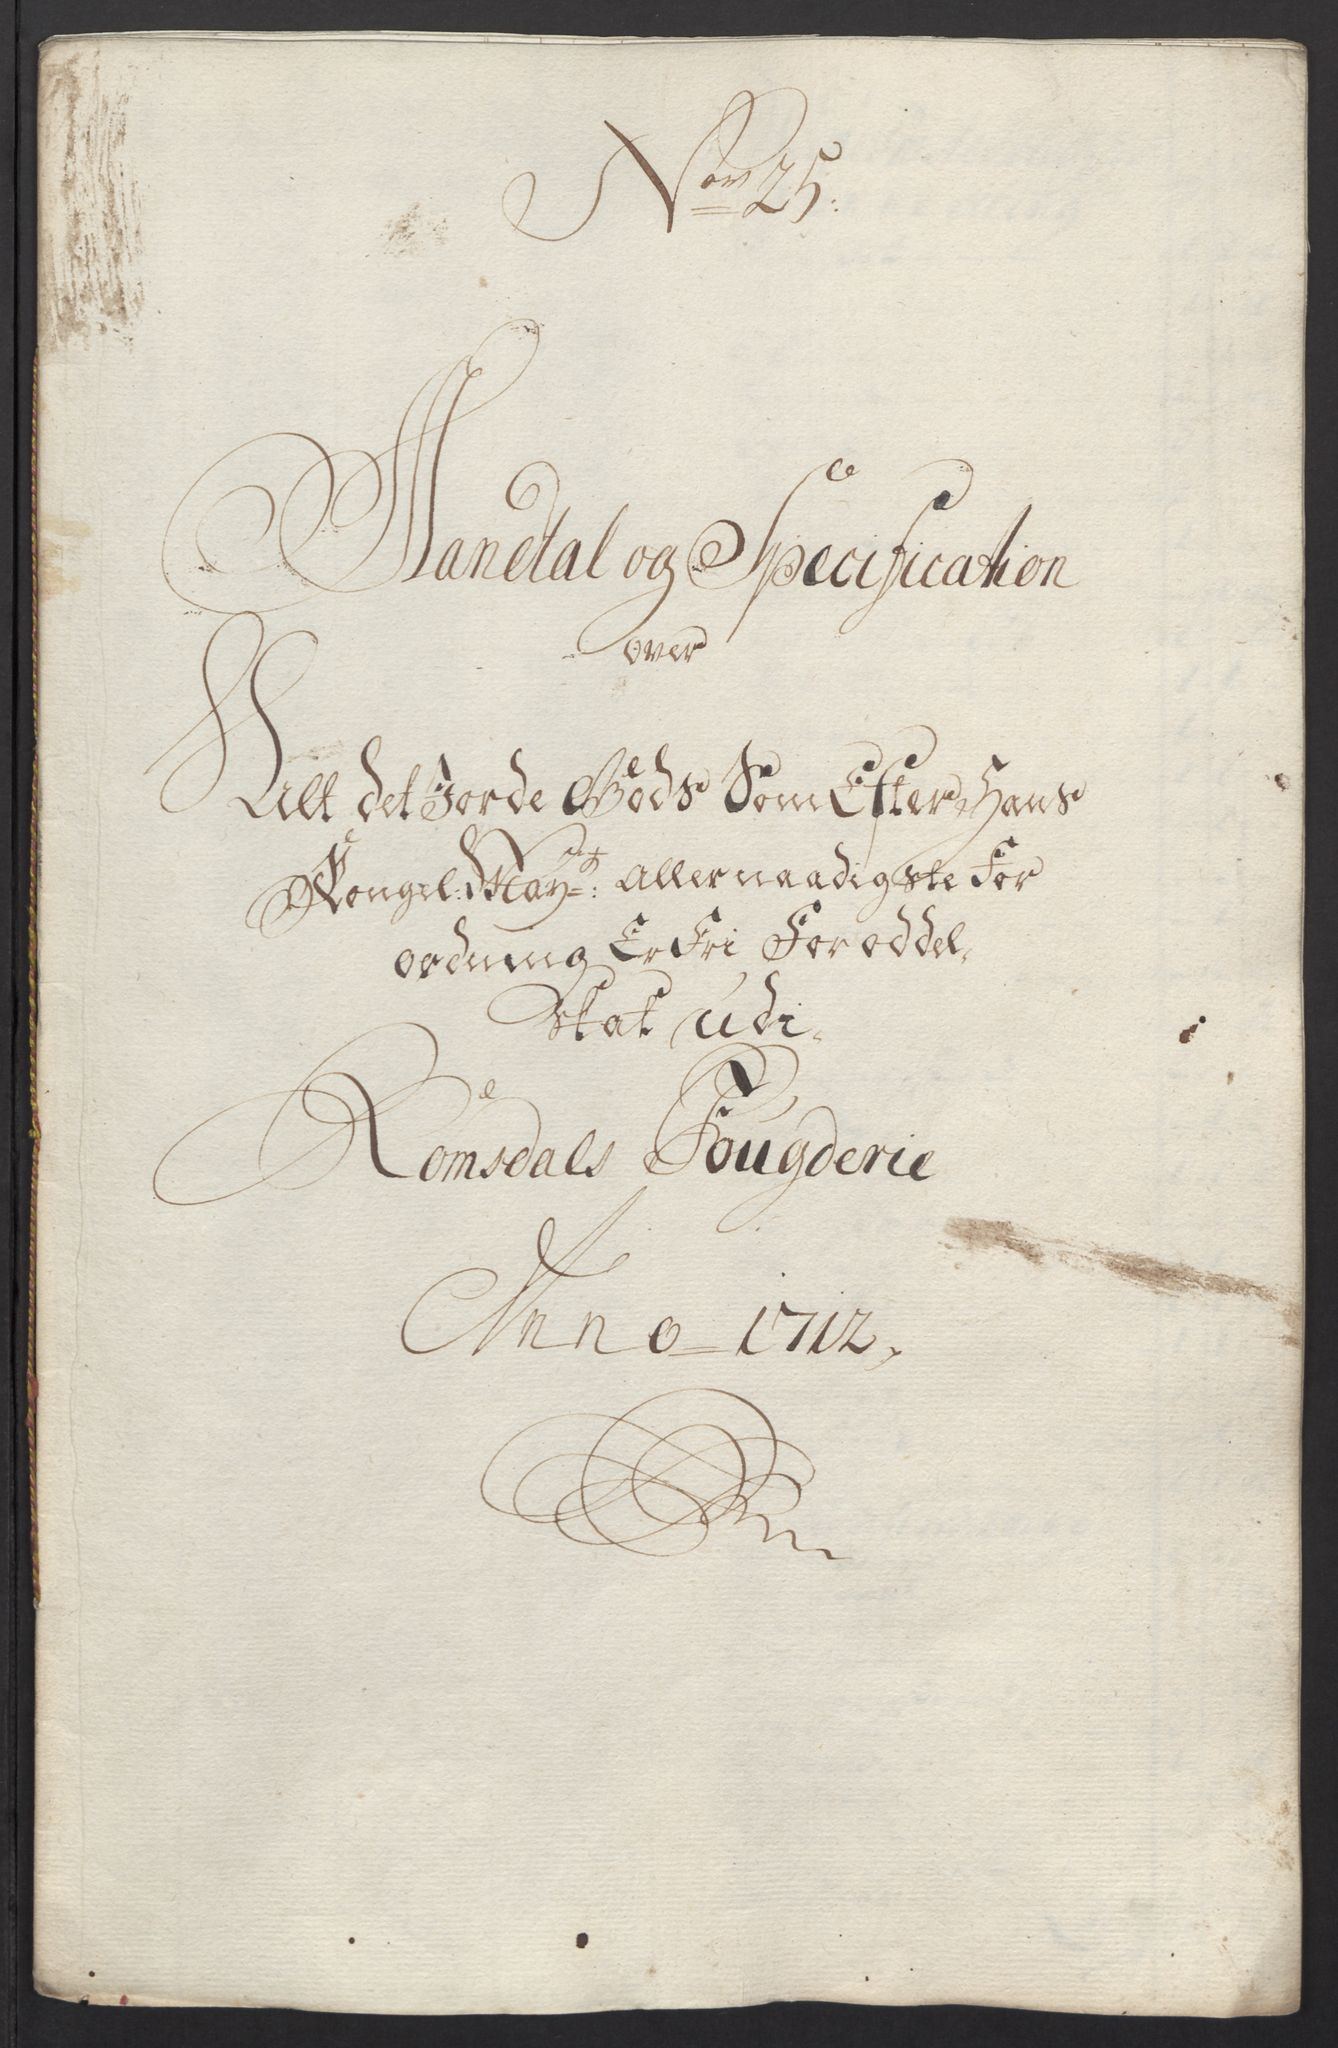 No 25:
Mandtal og Specification
over
Alt det Jorde Gods Som Efter Hans
Kongel: Mayts: Allernaadigste For
ordning Er Fri For oddel,
skat udi,
Romsdals Fougderie
Anno 1712,